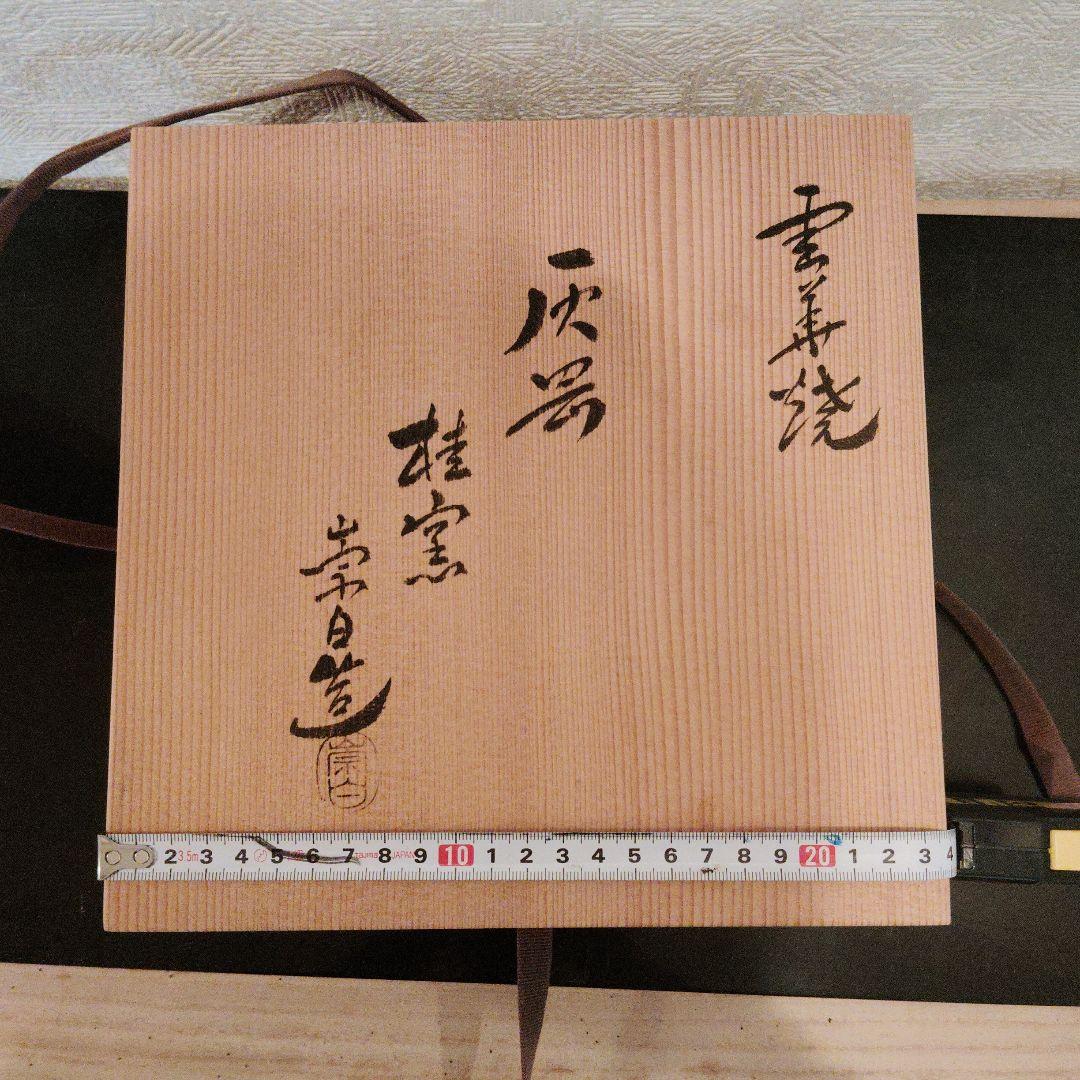 雲華焼
灰器
桂窯
崇白造
崇白
2 3.5m 3 4 5 6 7 Tajima JAPAN 8 9 10 1 2 3 4 5 6 7 8 9 20 1 2 3 4